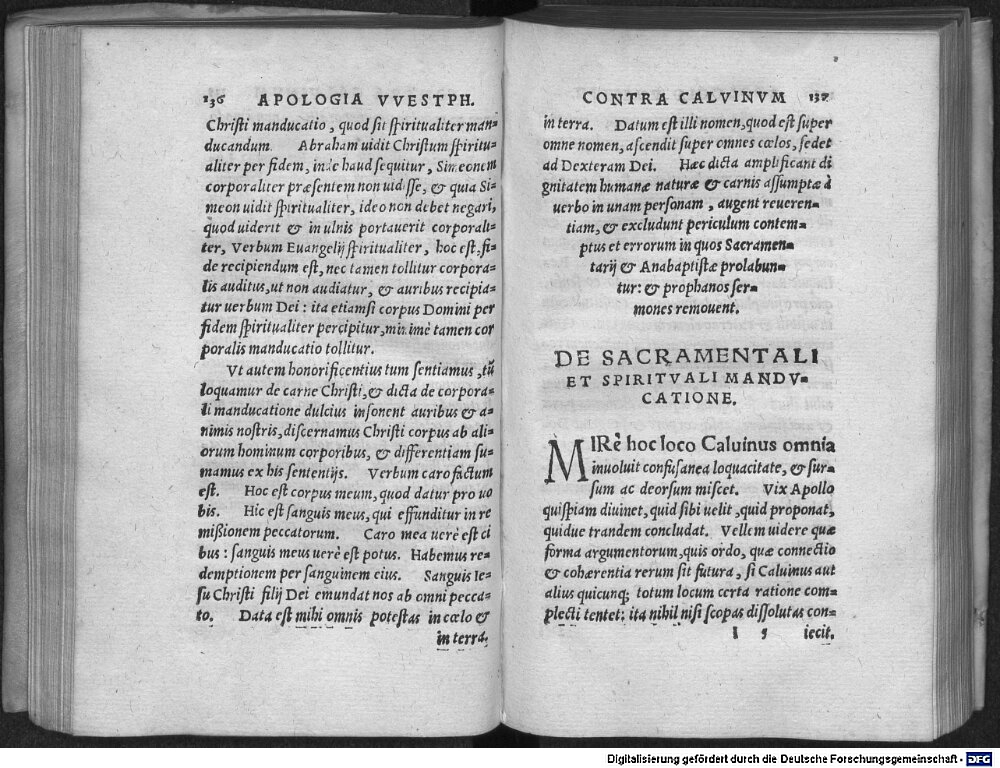 136 APOLOGIA VVESTPH.
Christi manducatio, quod sit spiritualiter man-
ducandum. Abraham uidit Christum spiritu-
aliter per fidem, inde haud sequitur, Simeonem
corporaliter præsentem non uidisse, & quia Si-
meon uidit spiritualiter, ideo non debet negari,
quòd uiderit & in ulnis portauerit corporali-
ter, Verbum Euangelij spiritualiter, hoc est, fi-
de recipiendum est, nec tamen tollitur corpora-
lis auditus, ut non audiatur, & auribus recipia-
tur uerbum Dei: ita etiamsi corpus Domini per
fidem spiritualiter percipitur, minimè tamen cor
poralis manducatio tollitur.
Vt autem honorificentius tum sentiamus, tũ
loquamur de carne Christi, & dicta de corpora-
li manducatione dulcius insonent auribus & a-
nimis nostris, discernamus Christi corpus ab ali-
orum hominum corporibus, & differentiam su-
mamus ex his sententijs. Verbum caro factum
est. Hoc est corpus meum, quod datur pro uo
bis. Hic est sanguis meus, qui effunditur in re
mißionem peccatorum. Caro mea uerè est ci
bus: sanguis meus uerè est potus. Habemus re-
demptionem per sanguinem eius. Sanguis Ie-
su Christi filij Dei emundat nos ab omni pecca-
to. Data est mihi omnis potestas in cœlo &
in terra.
CONTRA CALVINVM 137
in terra. Datum est illi nomen, quod est super
omne nomen, ascendit super omnes cœlos, sedet
ad Dexteram Dei. Hæc dicta amplificant di
gnitatem humanæ naturæ & carnis assumptæ à
uerbo in unam personam, augent reueren-
tiam, & excludunt periculum contem-
ptus et errorum in quos Sacramen-
tarij & Anabaptistæ prolabun-
tur: & prophanos ser-
mones remouent.
DE SACRAMENTALI
ET SPIRITVALI MANDV-
CATIONE.
MIRè hoc loco Caluinus omnia
inuoluit confusanea loquacitate, & sur-
sum ac deorsum miscet. Vix Apollo
quispiam diuinet, quid sibi uelit, quid proponat,
quidue trandem concludat. Vellem uidere quæ
forma argumentorum, quis ordo, quæ connectio
& cohærentia rerum sit futura, si Caluinus aut
alius quicunq; totum locum certa ratione com-
plecti tentet: ita nihil nisi scopas dissolutas con-
I 5 iecit.
Digitalisierung gefördert durch die Deutsche Forschungsgemeinschaft - DFG